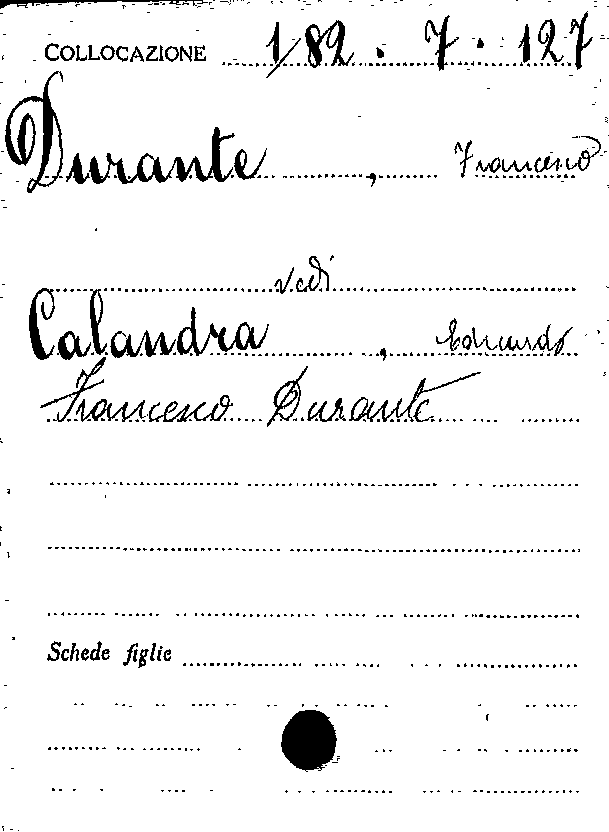 COLLOCAZIONE 1/82 . 7 . 127
Durante, Francesco
vedi
Calandra, Edoardo
Francesco Durante
Schede figlie